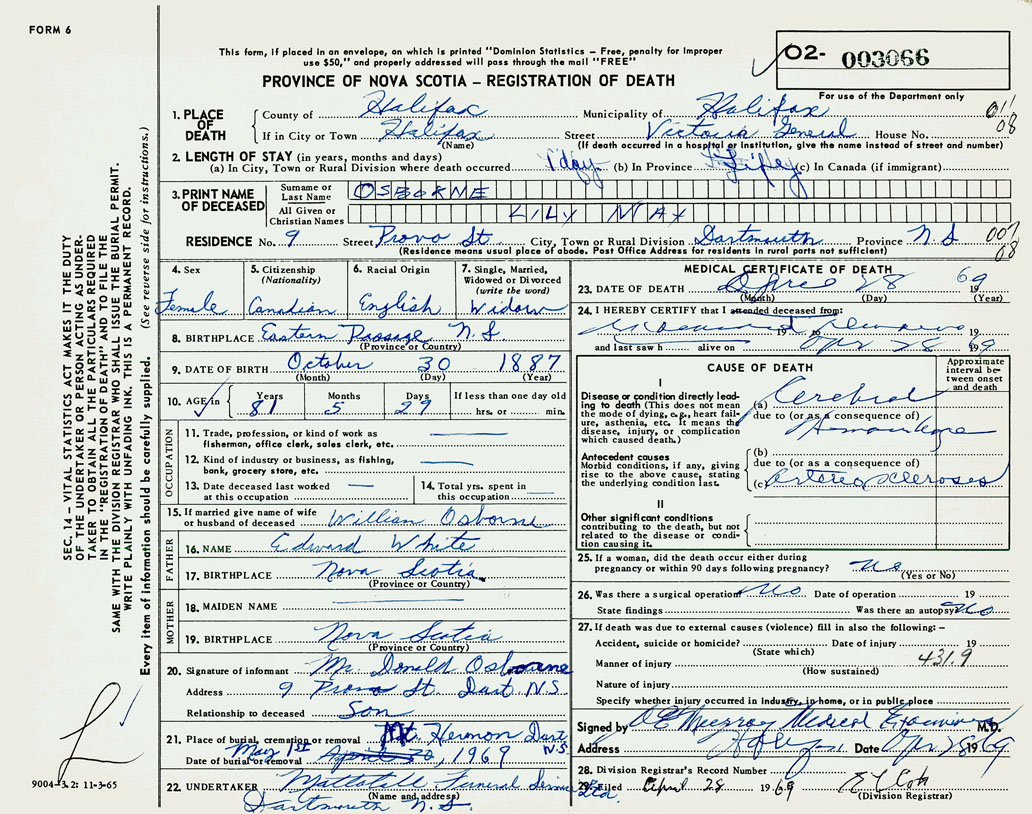 FORM 6
This form, if placed in an envelope, on which is printed "Dominion Statistics – Free, penalty for improper
use $50," and properly addressed will pass through the mail "FREE"
PROVINCE OF NOVA SCOTIA – REGISTRATION OF DEATH
02- 003066
For use of the Department only
1. PLACE OF DEATH
County of Halifax Municipality of Halifax 011
If in City or Town Halifax Street Victoria General House No. 08
(Name) (If death occurred in a hospital or institution, give the name instead of street and number)
2. LENGTH OF STAY (in years, months and days)
(a) In City, Town or Rural Division where death occurred 1 day (b) In Province Life (c) In Canada (if immigrant)
3. PRINT NAME OF DECEASED
Surname or Last Name OSBORNE
All Given or Christian Names LILY MAY
RESIDENCE No. 9 Street Provo St. City, Town or Rural Division Dartmouth Province N S 007
(Residence means usual place of abode. Post Office Address for residents in rural parts not sufficient) 08
4. Sex
Female
5. Citizenship
(Nationality)
Canadian
6. Racial Origin
English
7. Single, Married,
Widowed or Divorced
(write the word)
Widow
8. BIRTHPLACE Eastern Passage N. S.
(Province or Country)
9. DATE OF BIRTH October 30 1887
(Month) (Day) (Year)
10. AGE in Years Months Days If less than one day old
81 5 29 hrs. or min.
OCCUPATION
11. Trade, profession, or kind of work as
fisherman, office clerk, sales clerk, etc.
12. Kind of industry or business, as fishing,
bank, grocery store, etc.
13. Date deceased last worked
at this occupation
14. Total yrs. spent in
this occupation
15. If married give name of wife
or husband of deceased William Osborne
FATHER
16. NAME Edward White
17. BIRTHPLACE Nova Scotia
(Province or Country)
MOTHER
18. MAIDEN NAME
19. BIRTHPLACE Nova Scotia
(Province or Country)
20. Signature of informant Mr. Donald Osborne
Address 9 Provo St. Dart. N.S.
Relationship to deceased Son
21. Place of burial, cremation or removal Mt. Hermon Dart.
N.S.
May 1st
Date of burial or removal April 30, 1969
22. UNDERTAKER Mattatall Funeral Service Ltd.
(Name and address)
Dartmouth N. S.
MEDICAL CERTIFICATE OF DEATH
23. DATE OF DEATH April 28 1969
(Month) (Day) (Year)
24. I HEREBY CERTIFY that I attended deceased from:
19 to 19
and last saw h alive on Apr 28 1969
CAUSE OF DEATH
Approximate
interval be-
tween onset
and death
I
Disease or condition directly lead-
ing to death (This does not
mean the mode of dying, e.g., heart fail-
ure, asthenia, etc. It means the
disease, injury, or complication
which caused death.)
(a) Cerebral
due to (or as a consequence of)
Hemorrhage
Antecedent causes
Morbid conditions, if any, giving
rise to the above cause, stating
the underlying condition last.
(b)
due to (or as a consequence of)
(c) Arteriosclerosis
II
Other significant conditions
contributing to the death, but not
related to the disease or condi-
tion causing it.
25. If a woman, did the death occur either during
pregnancy or within 90 days following pregnancy? No
(Yes or No)
26. Was there a surgical operation? No Date of operation 19
State findings Was there an autopsy? No
27. If death was due to external causes (violence) fill in also the following: –
Accident, suicide or homicide? Date of injury 19
(State which)
Manner of injury 431.9
(How sustained)
Nature of injury
Specify whether injury occurred in Industry, in home, or in public place
Signed by Medical Examiner M.D.
Address Hfx Date Apr 28 1969
28. Division Registrar's Record Number
29. Filed April 28 1969
(Division Registrar)
SEC. 14 – VITAL STATISTICS ACT MAKES IT THE DUTY
OF THE UNDERTAKER OR PERSON ACTING AS UNDER-
TAKER TO OBTAIN ALL THE PARTICULARS REQUIRED
IN THE "REGISTRATION OF DEATH" AND TO FILE THE
SAME WITH THE DIVISION REGISTRAR WHO SHALL ISSUE THE BURIAL PERMIT.
WRITE PLAINLY WITH UNFADING INK. THIS IS A PERMANENT RECORD.
Every item of information should be carefully supplied. (See reverse side for instructions.)
9004–3.2: 11-3-65